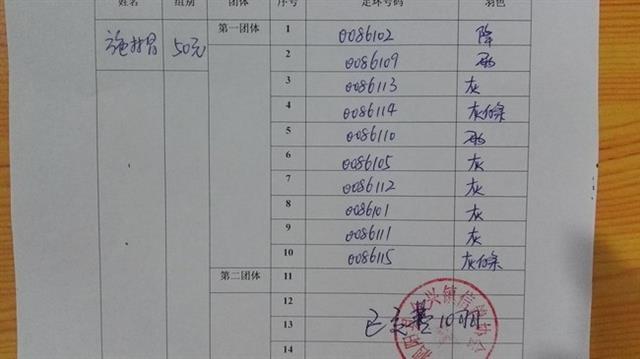 姓名 组别 团体 序号 足环号码 羽色
50元 第一团体 1 0086102 降
2 0086109 雨
3 0086113 灰
4 0086114 灰白条
5 0086110 雨
6 0086105 灰
7 0086112 灰
8 0086101 灰
9 0086111 灰
10 0086115 灰白条
第二团体 11
12
13 已交 10羽
14